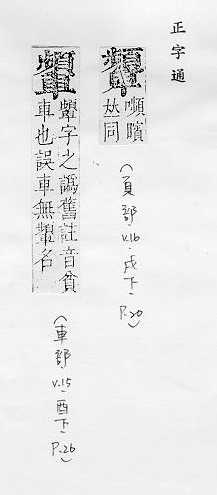 正字通
嚬矉
𠀤同
(頁部 v.16.戌下.P.20)
字之譌舊註音貧
車也誤車無名
(車部 v.15.酉下.P.26)